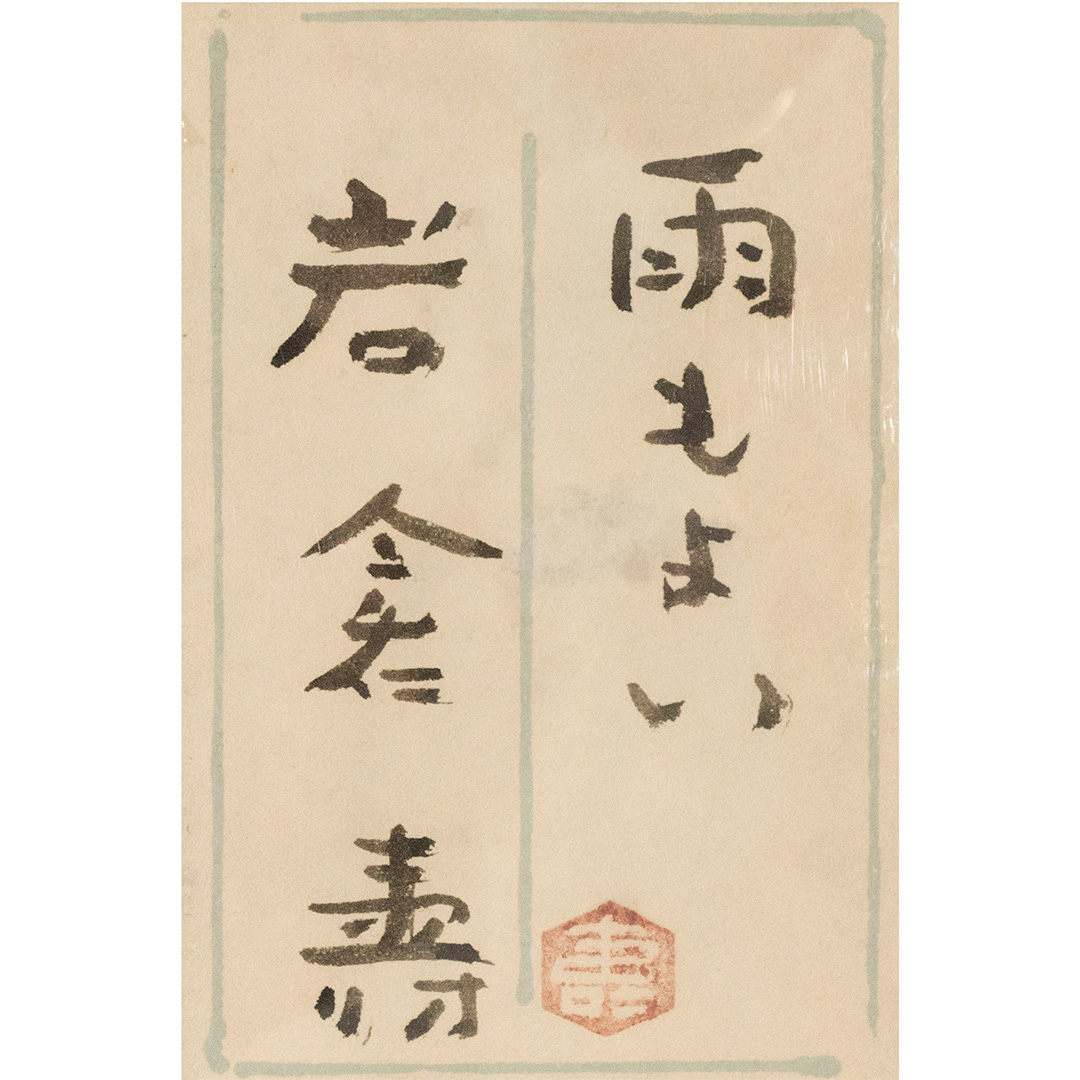 雨もよい
岩倉壽
壽